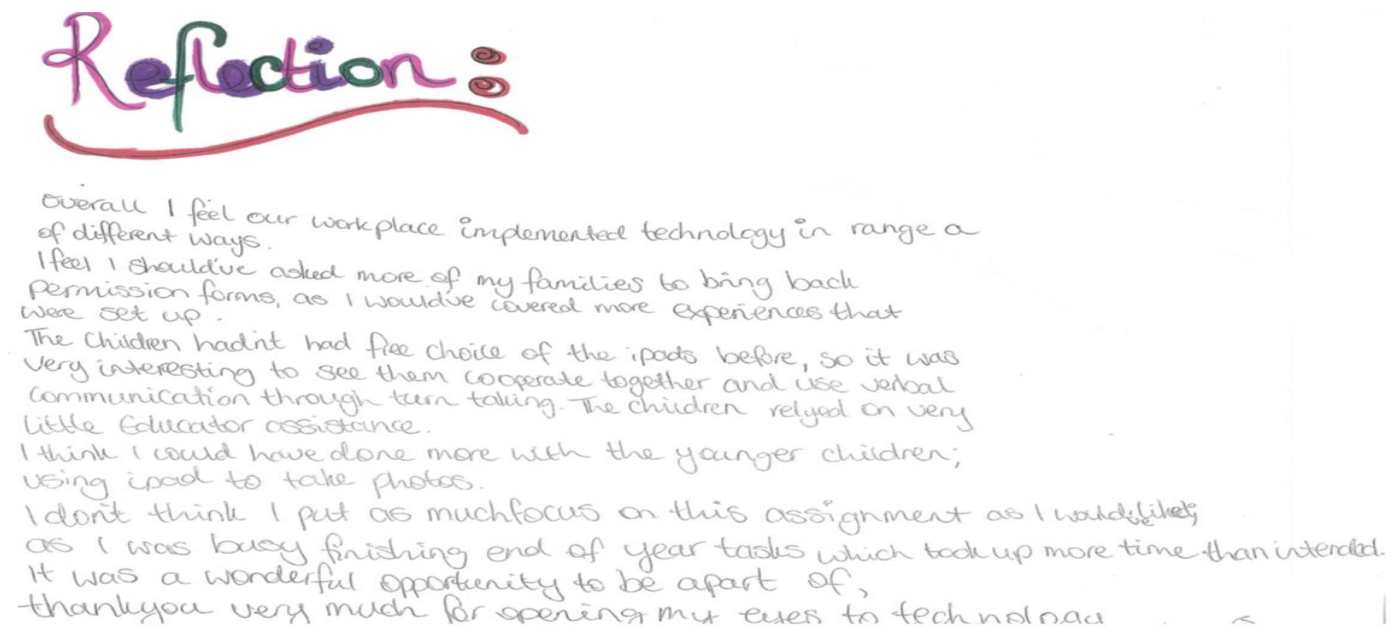 Reflection:
Overall I feel our workplace implemented technology in range a
of different ways.
I feel I should've asked more of my families to bring back
permission forms, as I would've covered more experiences that
were set up.
The Children hadn't had free choice of the ipads before, so it was
very interesting to see them cooperate together and use verbal
communication through turn taking. The children relyed on very
little Educator assistance.
I think I could have done more with the younger children;
using ipad to take photos.
I don't think I put as much focus on this assignment as I would've liked,
as I was busy finishing end of year tasks which took up more time than intended.
It was a wonderful opportunity to be apart of,
thankyou very much for opening my eyes to technology